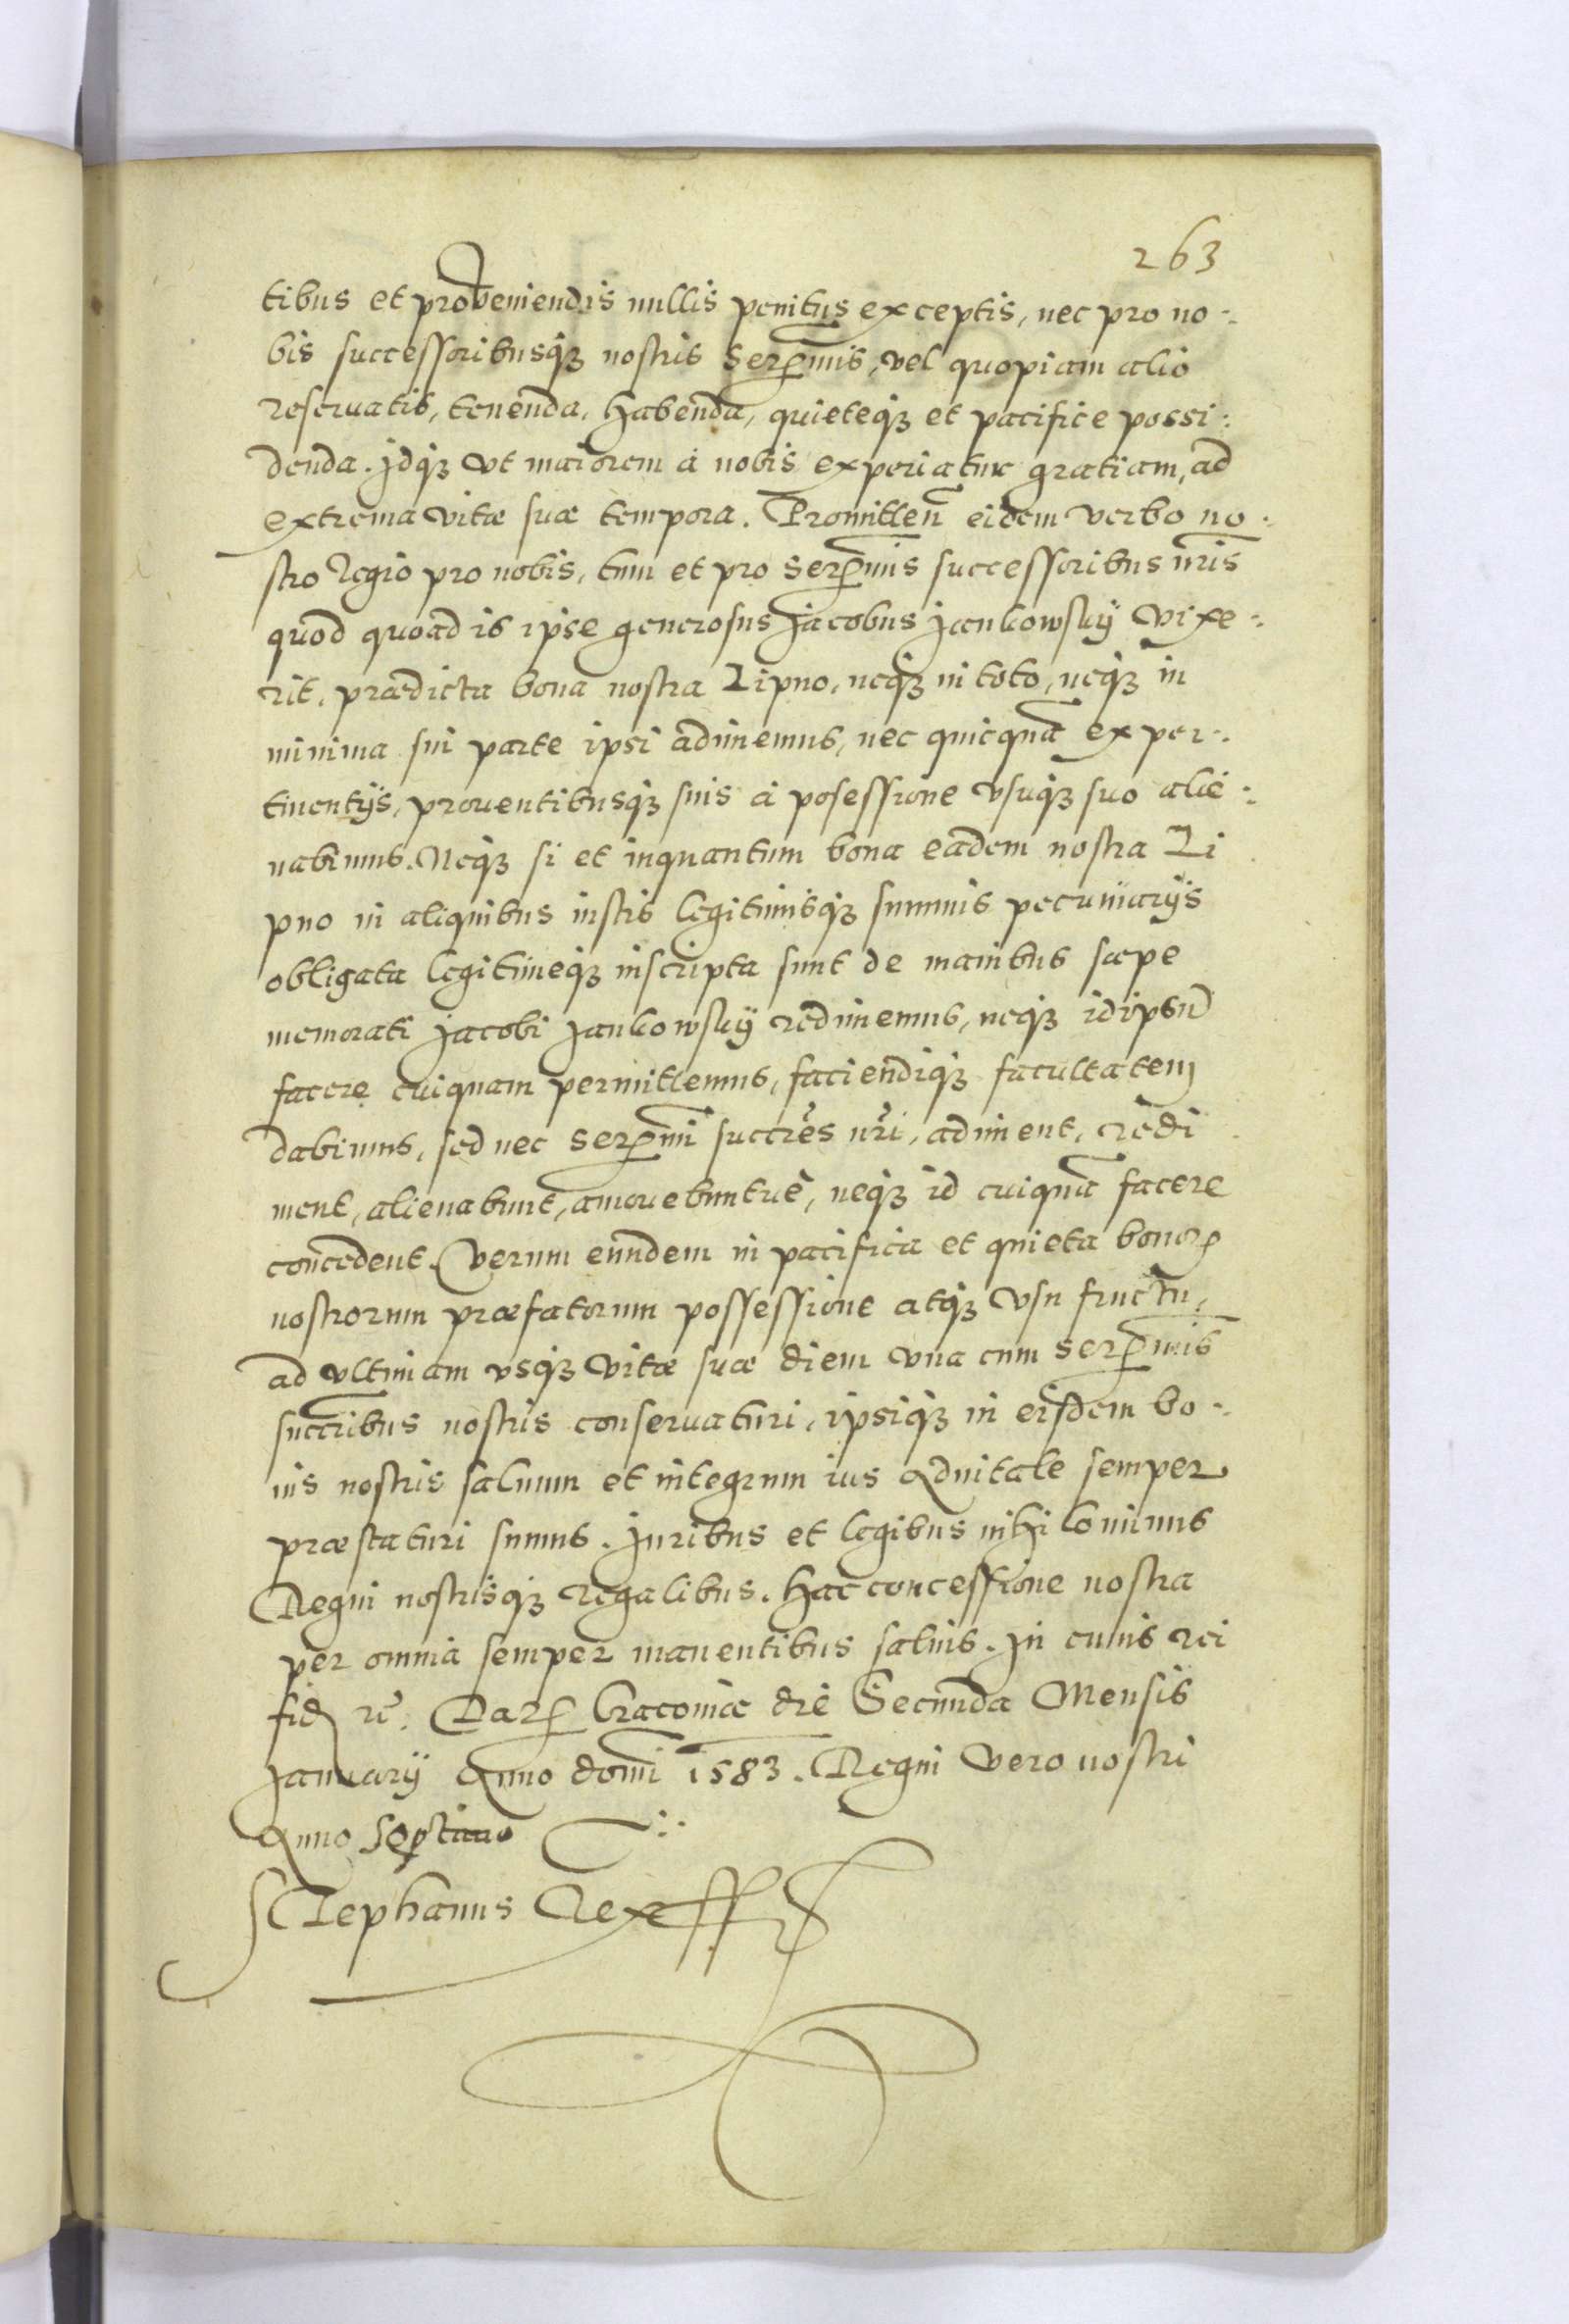 263
tibus et proveniendis nullis penitus exceptis, nec pro no-
bis successoribusq3 nostris Serenmis, vel quopiam alio
reservatis, tenenda, habenda, quieteq3 et pacifice possi-
denda. Idq3 vt maiorem a nobis experiatur gratiam, ad
extrema vitæ suæ tempora. Promitten̄ eidem verbo no-
stro Regio pro nobis, tum et pro Serenmis successoribus nris
quod quoad is ipse generosus Jacobus Jankowskÿ vixe-
rit, prædicta bona nostra Lipno, neq3 in toto, neq3 in
minima sui parte ipsi adimemus, nec quicquā ex per-
tinentÿs, prouentibusq3 suis a posessione vsuq3 suo alie-
nabimus. Neq3 si et inquantum bona eadem nostra Li
pno in aliquibus iustis legitimisq3 summis pecuniarÿs
obligata legitimeq3 inscripta sunt de manibus sæpe
memorati Jacobi Jankowskÿ redimemus, neq3 idipsū
facere cuiquam permittemus, faciendiq3 facultatem
dabimus, sed nec Serenmi succres nri, adiment, redi
ment, alienabunt, amouebuntue, neq3 id cuiquā facere
concedent. Verum eundem in pacifica et quieta bonorꝝ
nostrorum præfatorum possessione atq3 vsu fructu,
ad vltimam vsq3 vitæ suæ diem vna cum Serenmis
succribus nostris conservaturi, ipsiq3 in eisdem bo-
nis nostris saluum et integrum ius aduitale semper
præstaturi sumus. Juribus et legibus nihilominus
Regni nostrisq3 regalibus. hac concessione nostra
per omnia semper manentibus saluis. In cuius rei
fid rē. Datꝝ Cracouiæ die Secunda Mensis
Januarÿ Anno domi 1583. Regni vero nostri
Anno Septimo
Stephanus Rex